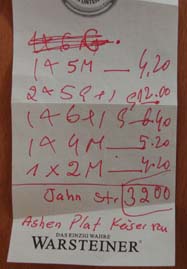 1 x 5 M — 4,20
2 x 5 9+1 9 12.00
1 x 6+1 9 6.40
1 x 4 M — 5.20
1 x 2 M — 4.20
Jahn Str 3200
Ashen Plat Keiser
DAS EINZIG WAHRE
WARSTEINER